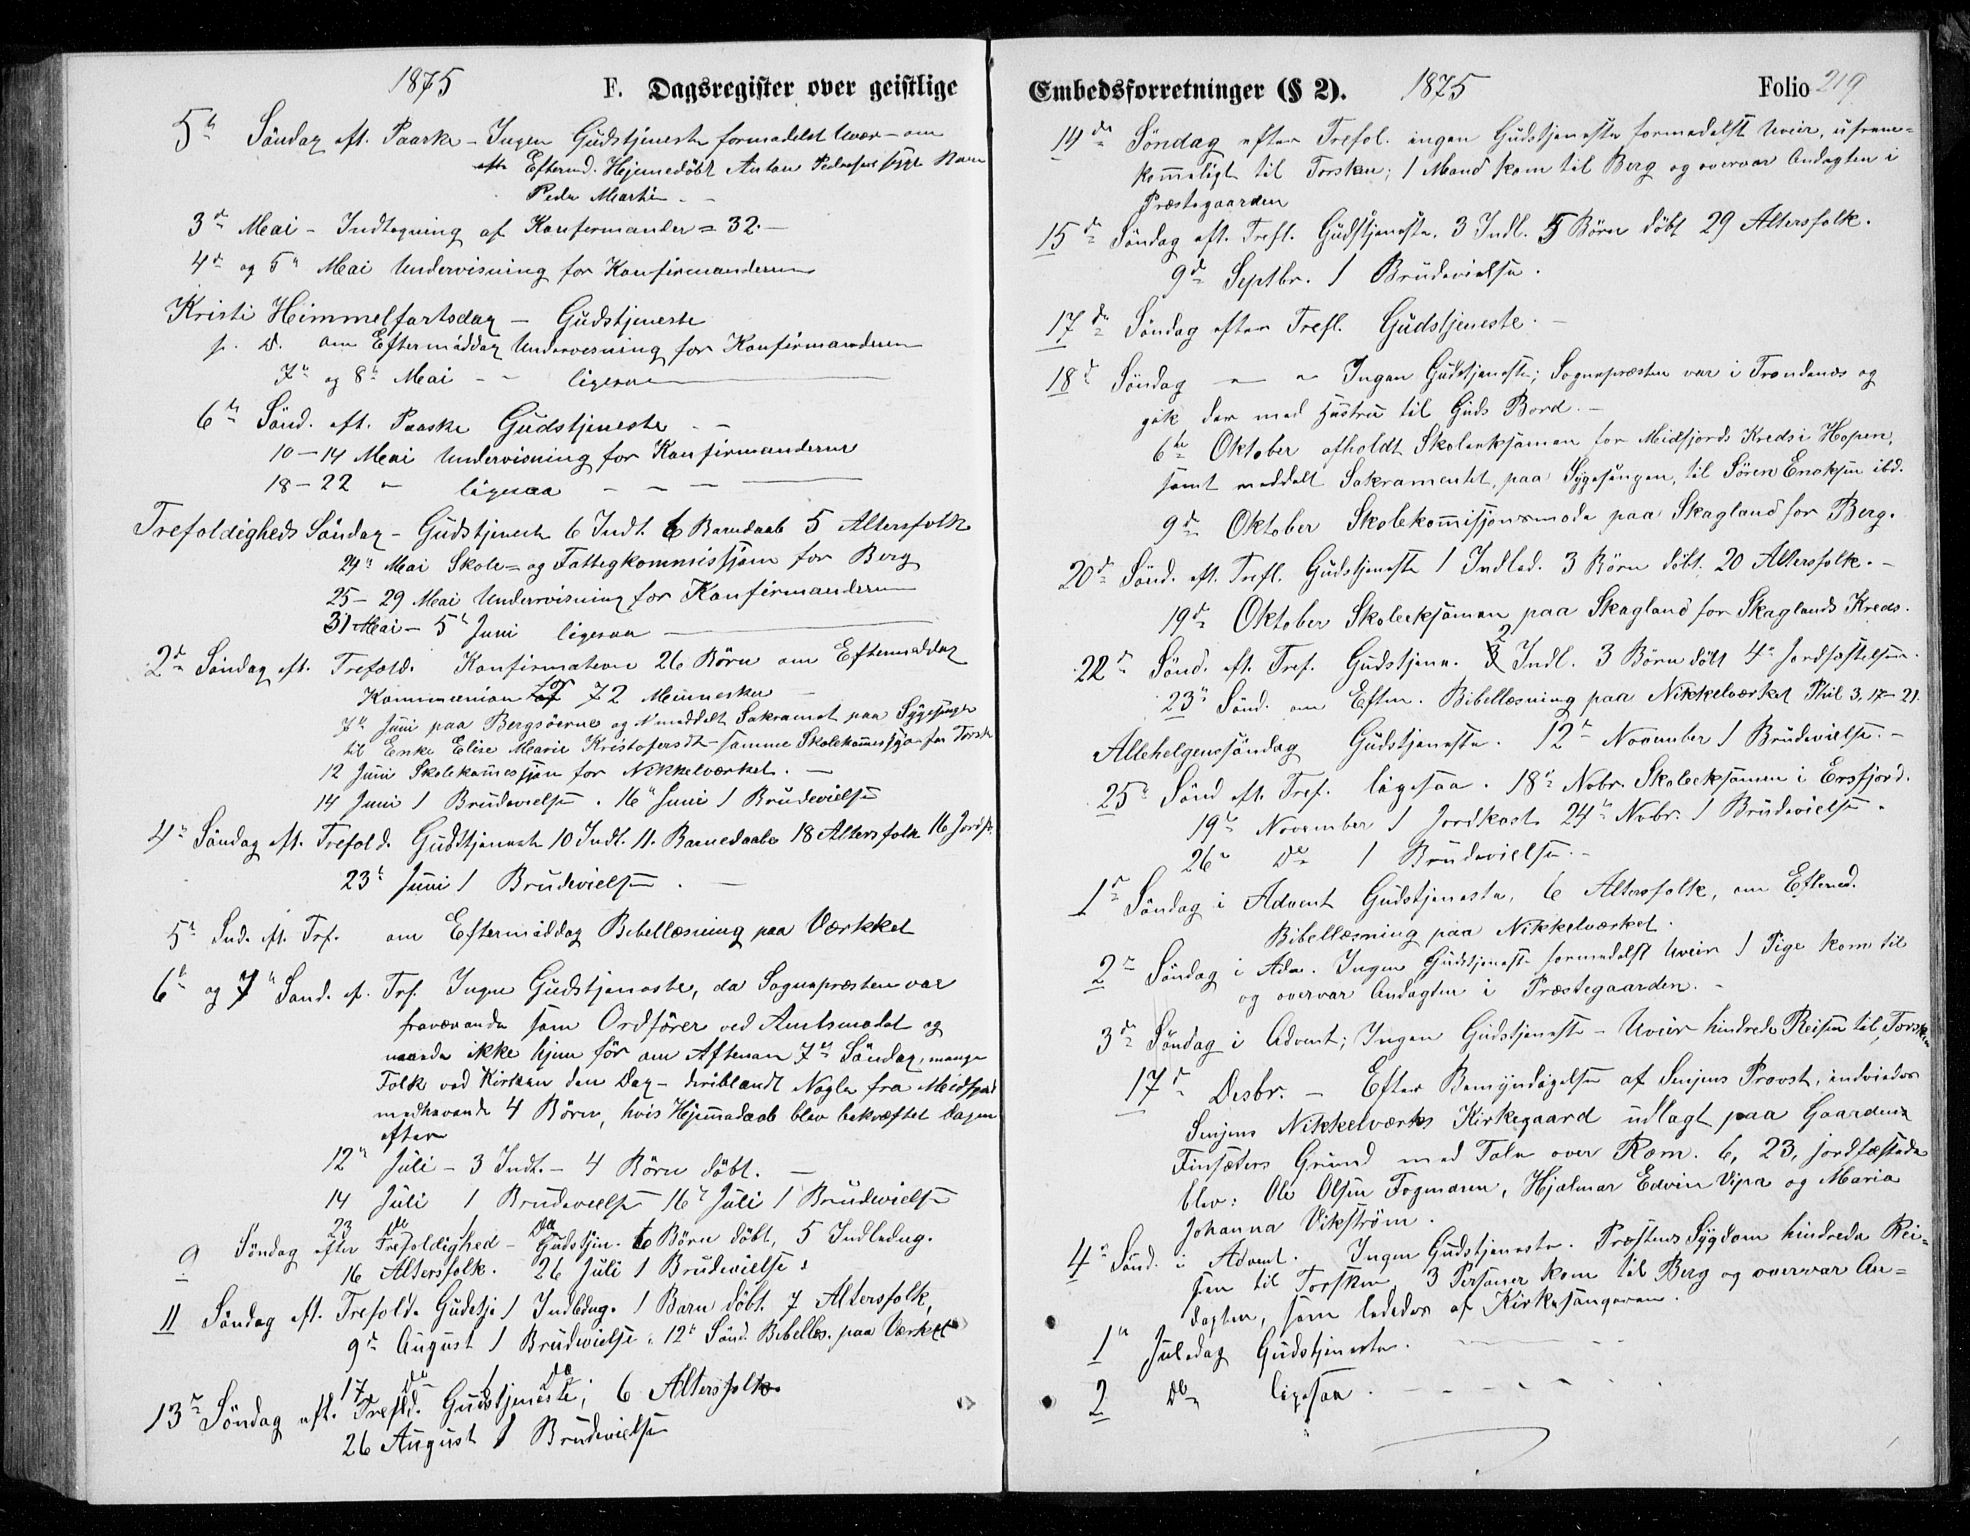 1875 F. Dagsregister over geistlige
5te Söndag eft. Paaske - Ingen Gudstjeneste formedelst Uvær - om
Eftermd. Hjemmedöbt Anton Pedersens Barn
Peder Martin.
3de Mai - Indtegning af Konfirmander = 32. -
4de og 5te Mai Undervisning for Konfirmanderne
Kristi Himmelfartsdag - Gudstjeneste
s. D. om Eftermiddag Undervisning for Konfirmanderne
7de og 8de Mai - - ligesaa
6te Sönd. eft. Paaske Gudstjeneste - -
10-14 Mai Undervisning for Konfirmanderne
18-22 " ligesaa - - -
Trefoldigheds Söndag - Gudstjeneste 6 Indl. 6 Barnedaab 5 Altersfolk
24de Mai Skole- og Fattigkommissjon for Berg
25-29 Mai Undervisning for Konfirmanderne
31 Mai - 5te Juni ligesaa
2den Söndag eft. Trefold. Konfirmation 26 Börn om Eftermiddag
Kommunion af 72 Mennesker
7de Juni paa Bergsöerne og meddelt Sakramet paa Sygesengen
til Enke Elise Marie Kristofersdt - samme Skolekommissjon for Torsk
12 Juni Skolekommissjon for Nikkelværket. -
14 Juni 1 Brudevielse. 16de Juni 1 Brudevielse
4de Söndag eft. Trefold. Gudstjeneste 10 Indl. 11 Barnedaabe 18 Altersfolk 16 Jordf.
23de Juni 1 Brudevielse. -
5te Snd. eft. Trf. om Eftermiddag Bibellæsning paa Værkket
6te og 7de Sönd. ef. Trf. Ingen Gudstjeneste, da Sognepræsten var
fraværende som Ordförer ved Amtsmödet og
naaede ikke hjem för om Aftenen 7de Söndag, mange
Folk ved Kirken den Dag - deriblandt Nogle fra Midfjord
medhavende 4 Börn, hvis Hjemmedaab blev bekræftet Dagen
efter
12te Juli - 3 Indl. - 4 Börn döbt. -
14 Juli 1 Brudevielse 16de Juli 1 Brudevielse
23 Do Do
9 Söndag efter Trefoldighed - Gudstjen. 6 Börn döbt, 5 Indledng.
16 Altersfolk. 26 Juli 1 Brudevielse.
11 Söndag eft. Trefold. Gudstje 1 Indledng. 1 Barn döbt. 7 Altersfolk,
9de August 1 Brudevielse. 12te Sönd. Bibellæs. paa Værket
17 Do 1 Do
13de Söndag eft. Trefld. Gudstjeneste; 6 Altersfolk.
26 August 1 Brudevielse
Embedsforretninger (§ 2). 1875 Folio 219
14de Söndag efter Trefol. ingen Gudstjeneste formedelst Uveir, ufrem-
kommeligt til Torsken; 1 Mand kom til Berg og overvar Andagten i
Præstegaarden
15de Söndag eft. Trefl. Gudstjeneste. 3 Indl. 5 Börn döbt 29 Altersfolk.
9de Septbr. 1 Brudevielse.
17de Söndag efter Trefl. Gudstjeneste. -
18de Söndag " " Ingen Gudstjeneste; Sognepræsten var i Trondenæs og
gik der med Hustru til Guds Bord. -
6te Oktober afholdt Skoleeksamen for Midfjords Kreds i Hopen,
samt meddelt Sakramentet, paa Sygesengen, til Sören Enoksen ibd.
9de Oktober Skolekommissjonsmöde paa Skagland for Berg.
20de Sönd. eft. Trefl. Gudstjeneste 1 Indled. 3 Börn döbt. 20 Altersfolk. -
19de Oktober Skoleeksamen paa Skagland for Skaglands Kreds.
22de Sönd. eft. Tref. Gudstjene. 2 Indl. 3 Börn döbt 4 Jordfæstelser.
23de Sönd. om Efterm. Bibellæsning paa Nikkelværket Phil 3, 17-21.
Allehelgenssöndag Gudstjeneste. 12te November 1 Brudevielse. -
25de Sönd eft. Tref. ligesaa. 18de Nobr. Skoleeksamen i Ersfjord.
19de November 1 Jordkast. 24de Nvbr. 1 Brudevielse.
26de Do 1 Brudevielse. -
1ste Söndag i Advent Gudstjeneste, 6 Altersfolk, om Eftermd.
Bibellæsning paa Nikkelværket.
2den Söndag i Adv. Ingen Gudstjeneste formedelst Uveir 1 Pige kom til
og overvar Andagten i Præstegaarden. -
3de Söndag i Advent; Ingen Gudstjeneste - Uveir hindrede Reisen til Torsken
17de Desbr. - Efter Bemyndigelse af Senjens Provst, indviedes
Senjens Nikkelværks Kirkegaard udlagt paa Gaardens
Finsæters Grund med Tale over Rom. 6, 23, jordfæstede
blev: Ole Olsen Fogmoen, Hjalmar Edvin Vipa og Maria
Johanna Vikström.
4de Sönd. i Advent. Ingen Gudstjeneste. Præstens Sygdom hindrede Rei-
sen til Torsken 3 Personer kom til Berg og overvar An-
dagten, som lededes af Kirkesangeren.
1ste Juledag Gudstjeneste. - - -
2 Do ligesaa. - - - -